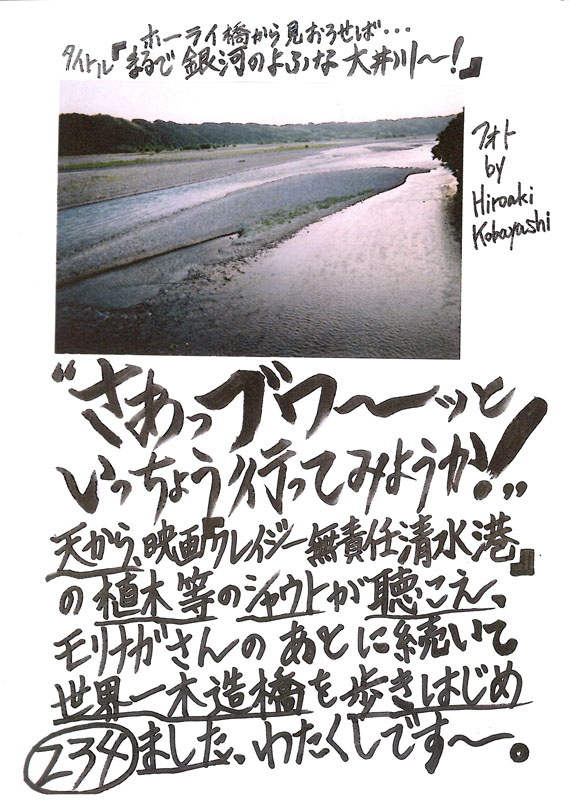 ホーライ橋から見おろせば・・・
タイトル『まるで銀河のよふな大井川〜!』
フォト
by
Hiroaki
Kobayashi
“さあっブワ〜ッと
いっちょう行ってみようか!!”
天から、映画『クレイジー無責任清水港』
の植木等のシャウトが聴こえ、
モリナガさんのあとに続いて
世界一木造橋を歩きはじめ
ました、わたくしです〜。
234